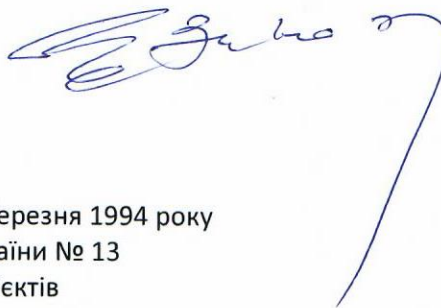 ерезня 1994 року
аїни № 13
єктів